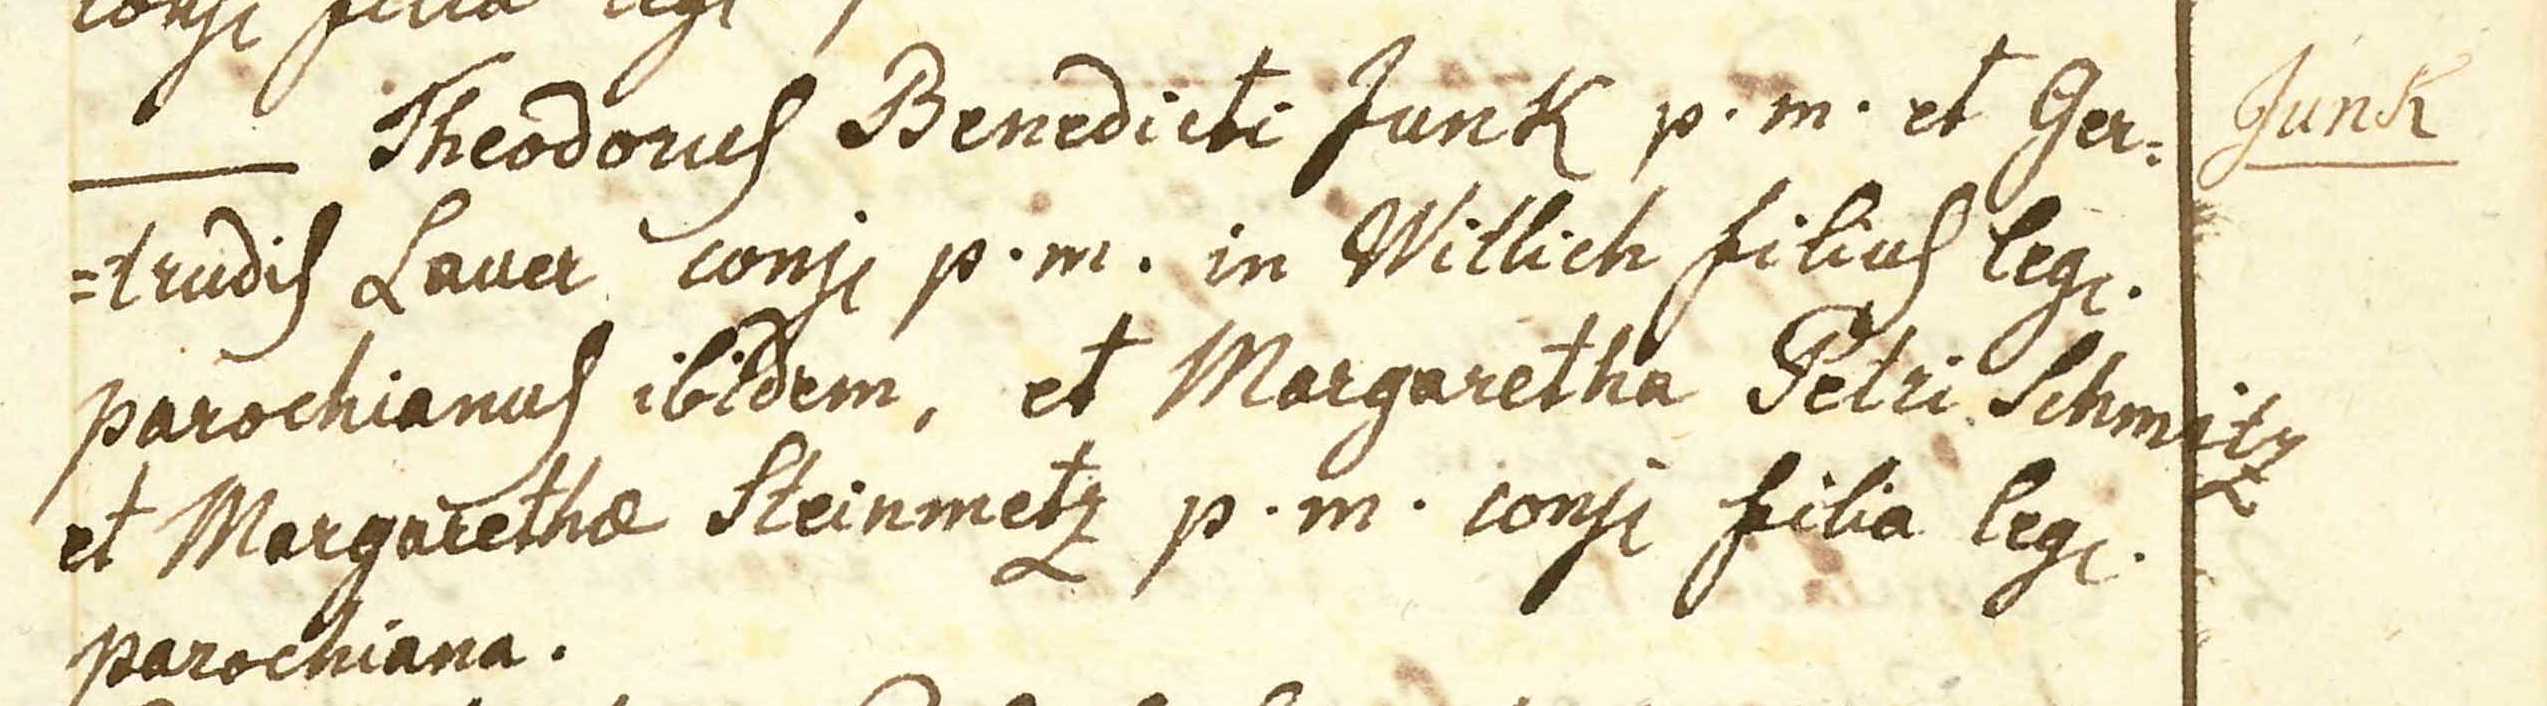 conj: filia leg:
—— Theodorus Benedicti Junk p. m. et Ger=
Junk
=trudis Lauer conj: p. m. in Witlich filius leg:.
parochianus ibidem, et Margaretha Petri Schmitz
et Margarethæ Steinmetz p. m. conj: filia leg:.
parochiana.